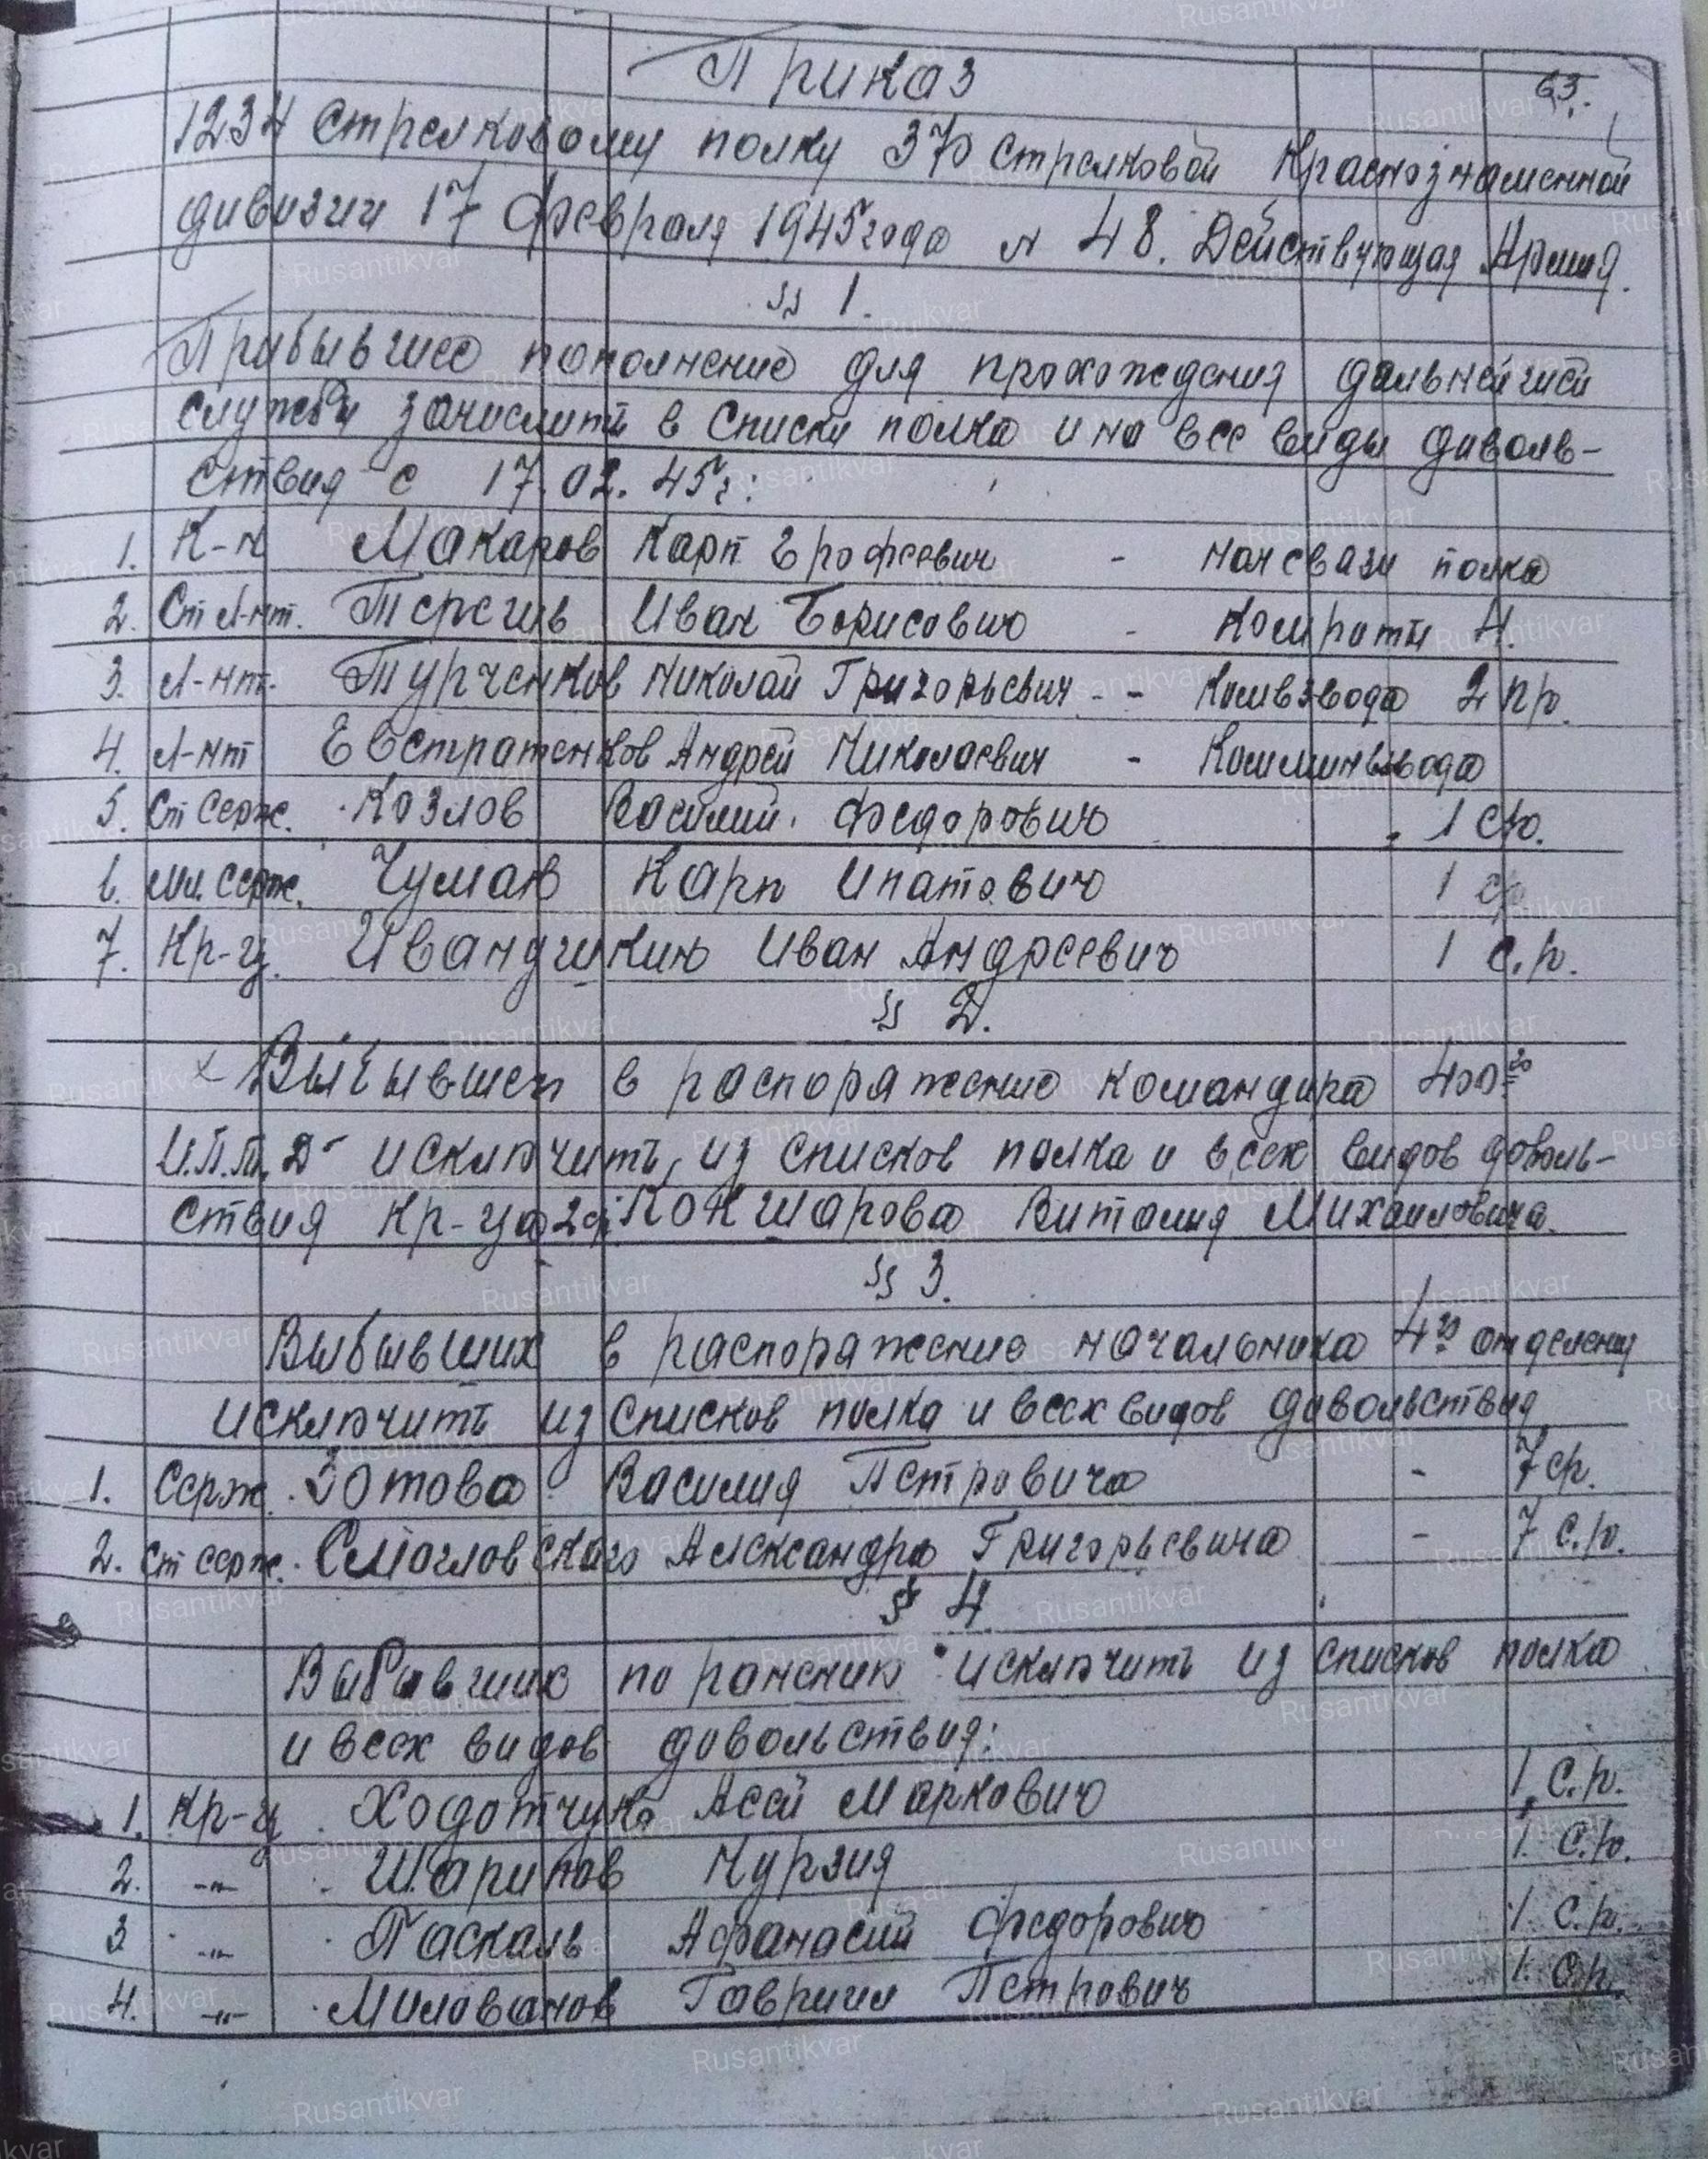 Приказ
63.
1234 Стрелковому полку 370 стрелковой Краснознаменной
дивизии 17 февраля 1945 года № 48. Действующая Армия.
§§ 1.
Прибывшее пополнение для прохождения дальнейшей
службы зачислить в списки полка и на все виды доволь-
ствия с 17.02.45г:
1. К-н Макаров Карп Ерофеевич - нач связи полка
2. Ст Л-нт. Терешив Иван Борисович - Комроты
3. Л-нт. Турченков Николай Григорьевич - - Комвзвода 2 пр.
4. Л-нт Евстратенков Андрей Николаевич - Комминвзвода
5. Ст Серж. Козлов Василий Федорович 1 ср.
6. Мл. Серж. Чумак Карп Ипатович 1 ср
7. Кр-ц. Ивандикин Иван Андреевич 1 с.р.
§§ 2.
Выбывшего в распоряжение командира 400го
исключить из списков полка и всех видов доволь-
ствия Кр-ца Кокшарова Виталия Михаиловича.
§§ 3.
Выбывших в распоряжение начальника 4го отделения
исключить из списков полка и всех видов довольствия
1. Серж. Зотова Василия Петровича - 7 ср.
2. Ст серж. Смогловского Александра Григорьевича - 7 с.р.
§ 4
Выбывших по ранению исключить из списков полка
и всех видов довольствия:
1. Кр-ц Ходотчук Асей Маркович 1 с.р.
2. -"- Шарипов Нурзия 1 с.р.
3 -"- Паскаль Афанасий Федорович 1 с.р.
4. -"- Милованов Гавриил Петрович 1 с.р.
Rusantikvar